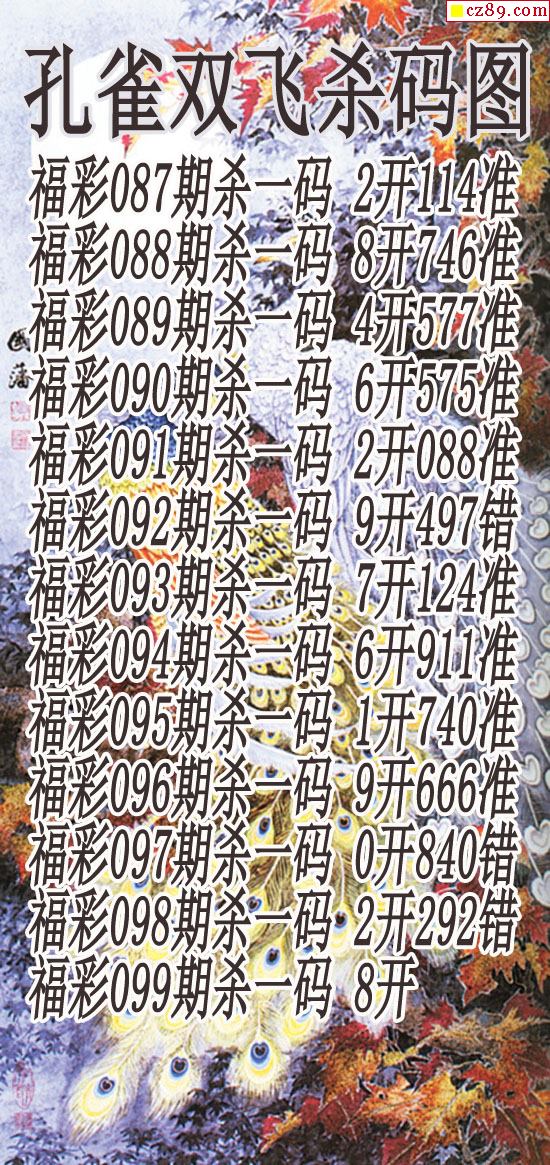 cz89.com
孔雀双飞杀码图
福彩087期杀一码 2开114准
福彩088期杀一码 8开746准
福彩089期杀一码 4开577准
福彩090期杀一码 6开575准
福彩091期杀一码 2开088准
福彩092期杀一码 9开497错
福彩093期杀一码 7开124准
福彩094期杀一码 6开911准
福彩095期杀一码 1开740准
福彩096期杀一码 9开666准
福彩097期杀一码 0开840错
福彩098期杀一码 2开292错
福彩099期杀一码 8开